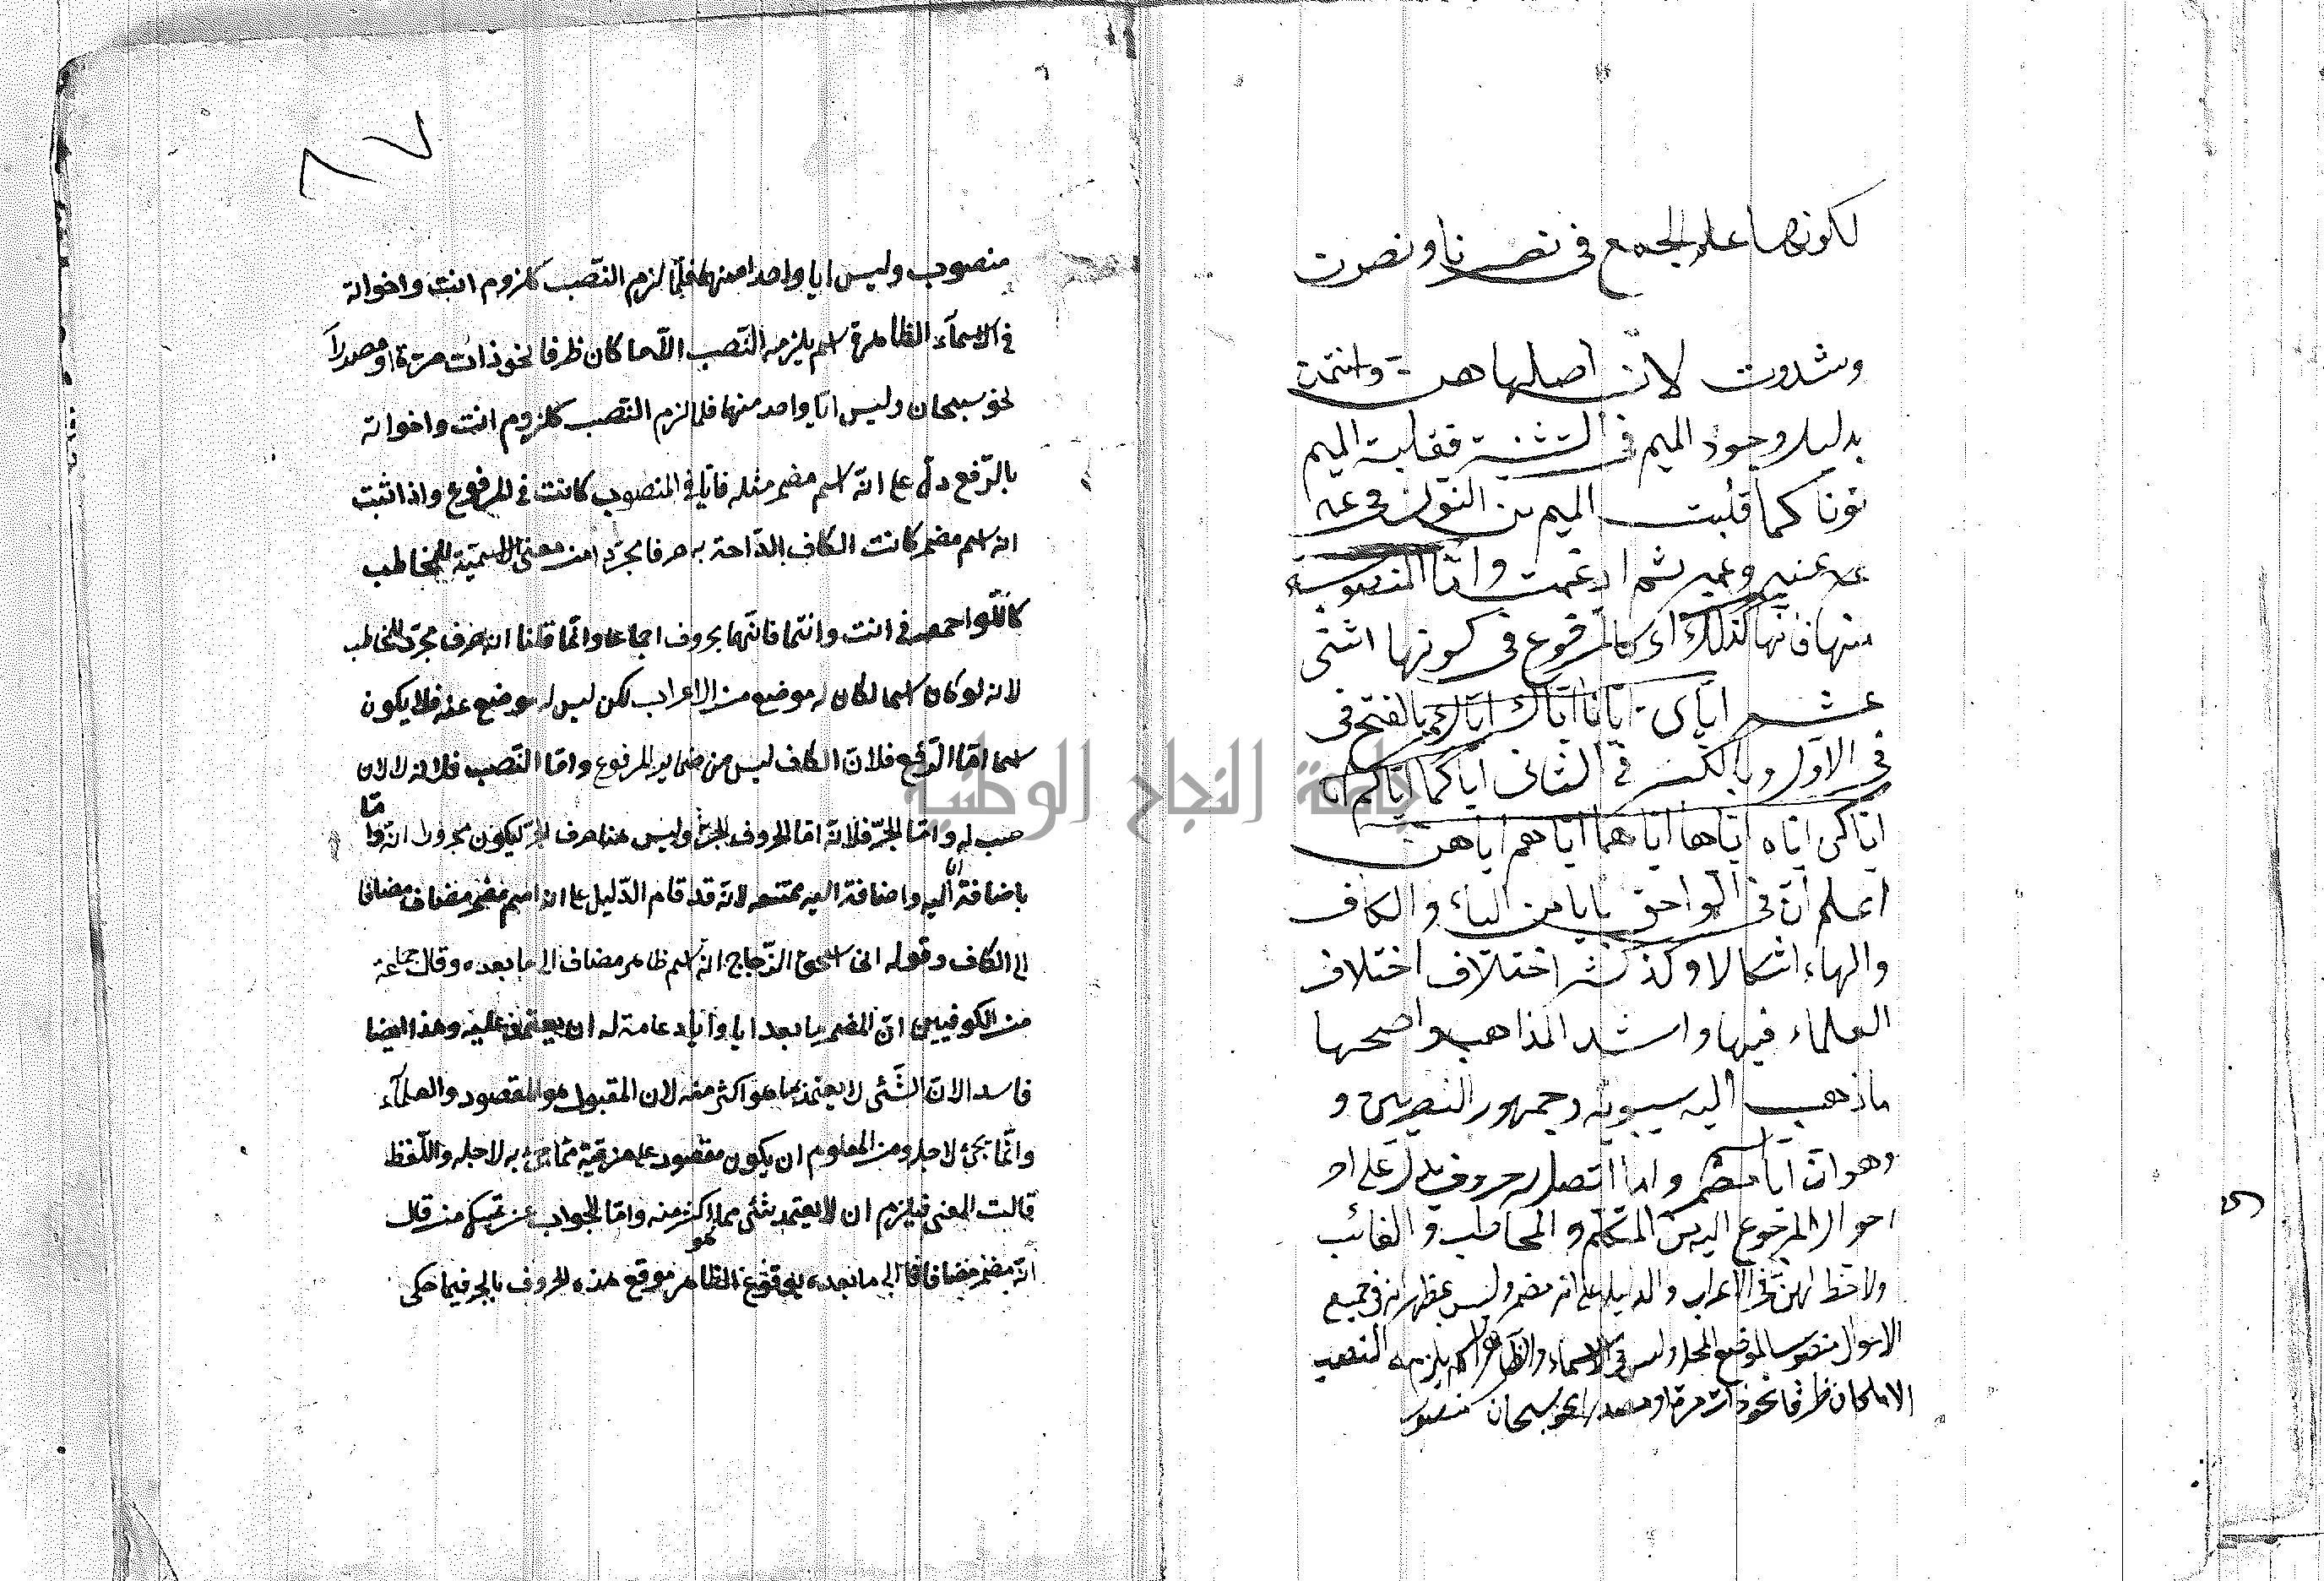 لكونها على الجمع في نصرنا ونصرت
وشددت لان اصلها هن وانتمن
بدليل وجود الميم في التثنية فقلبة الميم
نونا كما قلبت الميم من النون في عمـ
عنبر وعمبر ثم ادغمت واما المنصوبة
منها فانها كذلك اى كالمرفوع في كونها اثنى
عشر اياى ايانا اياك اياك بالفتح في
في الاول وبالكسر في الثانى اياكما اياكم ايا
اياكن اياه اياها اياهما اياهم اياهن
اعلم ان في الواحق بايا من الياء والكاف
والهاء اشكالا وكذ كثر اختلاف اختلاف
العلماء فيها واشد المذاهب واصحها
ماذهب اليه سيبويه وجمهور النصريين و
وهو ان ايا اسم مضمر وما اتصل به حروف يدل على احو
احوال المرجوع اليه من المتكلم والمخاطب والغائب
ولاحظ لهن في الاعراب والدليل على انه مضمر وليس بمظهر انه في جميع
الاحوال منصوب الموضع المحل وليس في الاسماء والظاهر اسم يلزمه النصب
الا ماكان ظرفا نحو ذات مرة او مصدرا نحو سبحان منصوب
٨٧
منصوب وليس ايا واحدا منها فلما لزم النصب كلزوم انت واخواته
في الاسماء الظاهرة اسم يلزمه النصب الا ما كان ظرفا نحو ذات مرة او مصدرا
نحو سبحان وليس ايا واحد منها فلما لزم النصب كلزوم انت واخواته
بالرفع دل على انه اسم مضمر مثله فايا في المنصوب كانت في المرفوع واذا ثبت
انه اسم مضمر كانت الكاف الاحقة به حرفا مجردا من معنى الاسمية للمخاطب
كاللواحق في انت وانتما فانها بحروف اجماعا وانما قلنا انه حرف مجرد للمخاطب
لانه لو كان اسما لكان له موضع من الاعراب لكن ليس له موضع عنه فلا يكون
اسما اما الرفع فلان الكاف ليس من ضماير المرفوع واما النصب فلانه لا لان
صب له واما الجر فلانه اما لحروف الجر وليس هنا حرف الجر ليكون مجرورا انه واما
باضافة ايا اليه واضافة اليه ممتنعه لانه قد قام الدليل على انه اسم مضمر مضاف مضافا
الى الكاف وقوله ابى اسحق الزجاج انه اسم ظاهر مضاف الى ما بعده وقال جماعة
من الكوفيين ان المضمر ما بعد ايا وايا دعامة له ان يعتمد عليه وهذا ايضا
فاسد الان الشئ لا يعتمد بما هو اكثر منه لان المقبول هو المقصود والعلماء
وانما يجئ لاجله ومن المعلوم ان يكون مقصود على مزقية مما جئ به لاجله واللفظ
قالت المعنى فيلزم ان لا يعتمد بشئ مما هو اكثر منه واما الجواب عن تمسك من قال
انه مضمر مضافا الى ما بعده بوقوع الظاهر موقع هذه الحروف بالجر فيما حكى
جامعة النجاح الوطنية